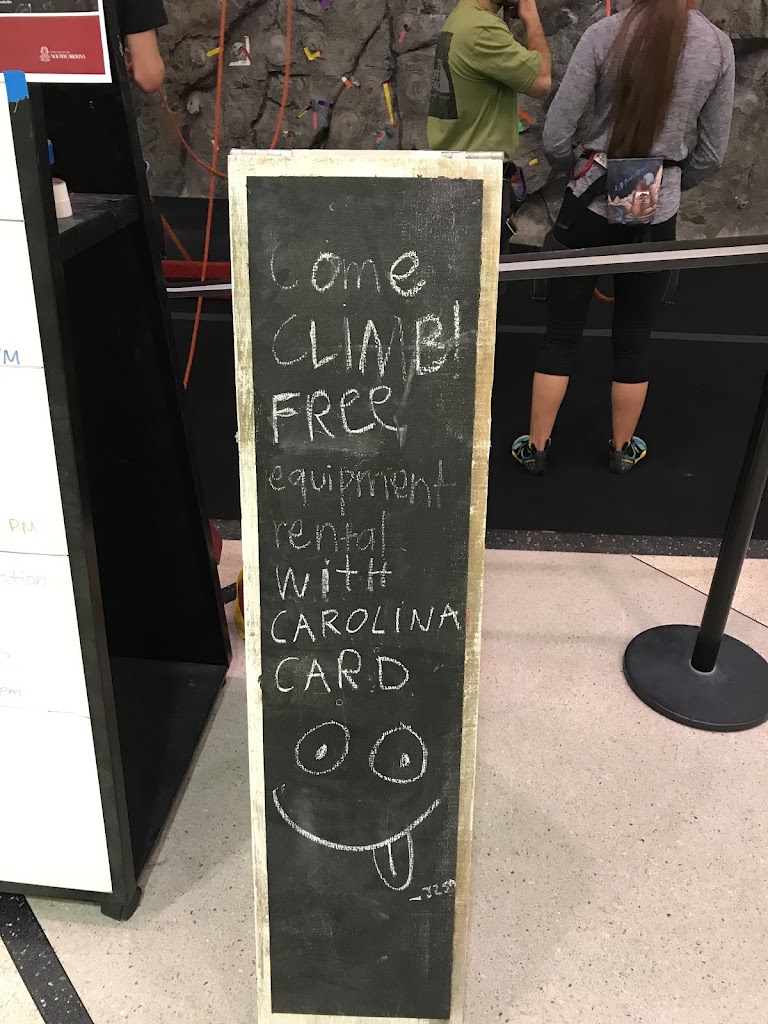 SOUTH CAROLINA
Come
CLIMB!
FREE
equipment
rental
WITH
CAROLINA
CARD
PM
PM
ation
pm